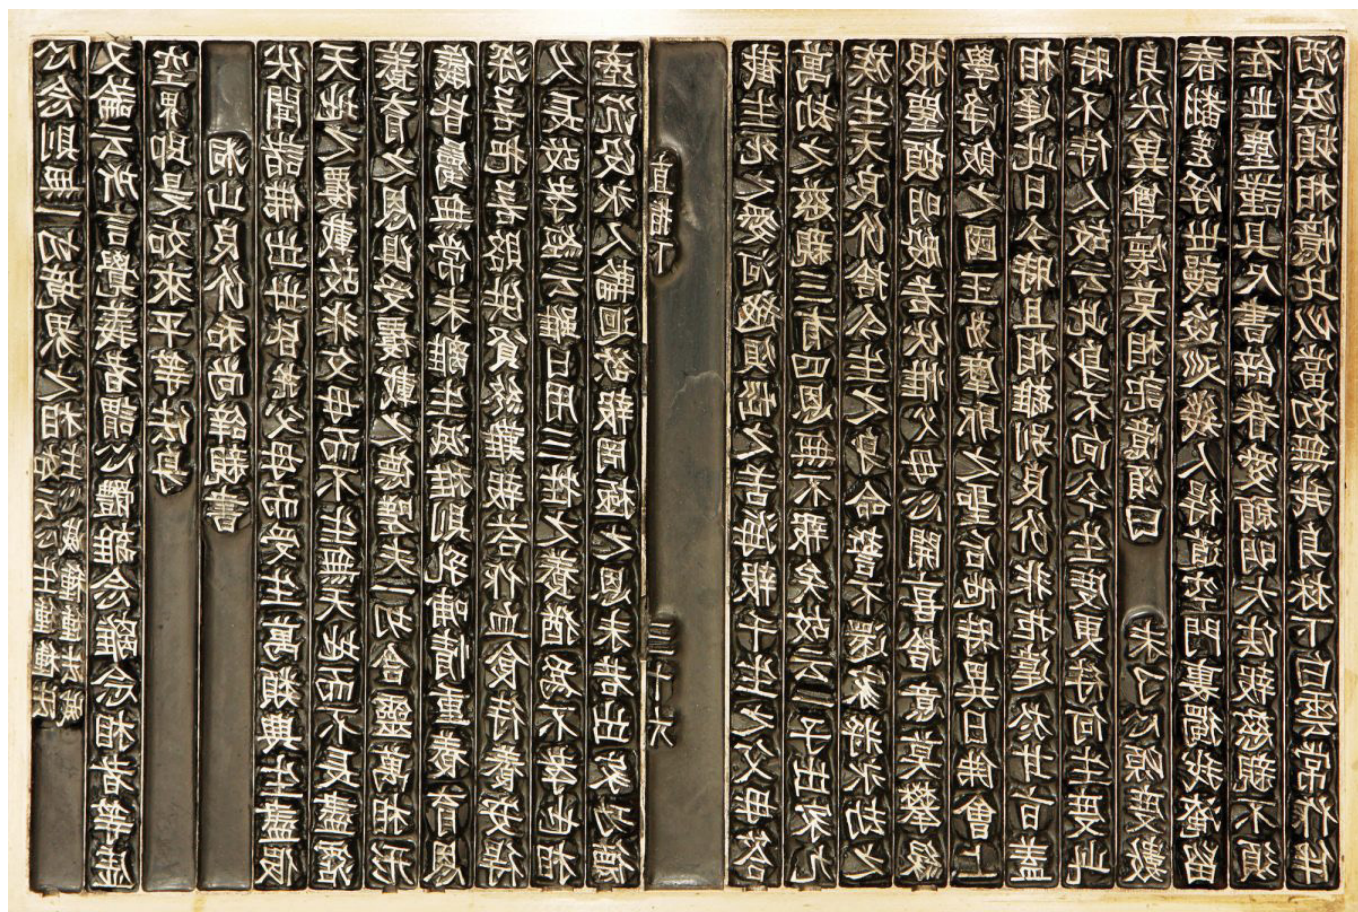 心念則無一切境界之相
又論云所言覺義者謂心體離念離念相者等虛
空界即是如來平等法身
洞山良价和尚辭親書
伏聞諸佛出世皆從父母而受生萬類興生盡假
天地之覆載故非父母而不生無天地而不長盡霑
養育之恩俱受覆載之德嗟夫一切含靈萬相形
儀皆屬無常未離生滅稚則乳哺情重養育恩
深若把若賂供資終難報答作血食侍養安得
久長故孝經云雖日用三牲之養猶爲不孝也相
牽沉沒永入輪迴欲報罔極之恩未若出家功德
直指下 三十六
截生死之愛河越煩惱之苦海報千生之父母答
萬劫之慈親三有四恩無不報矣故云一子出家九
族生天良价捨今生之身命誓不還家將永劫之
根塵頓明般若伏惟父母心開喜捨意莫攀緣
學淨飯之國王效摩耶之聖后他時異日佛會上
相逢此日今時且相離別良价非拒違於甘旨蓋
時不待人故云此身不向今生度更待何生度此
身伏冀尊懷莫相記憶頌曰 未了心源度數
春翻嗟浮世謾逡巡幾人得道空門裏獨我淹留
在世塵謹具尺書辭眷愛願明大法報慈親不須
洒淚頻相憶比似當初無我身林下白雲常作伴